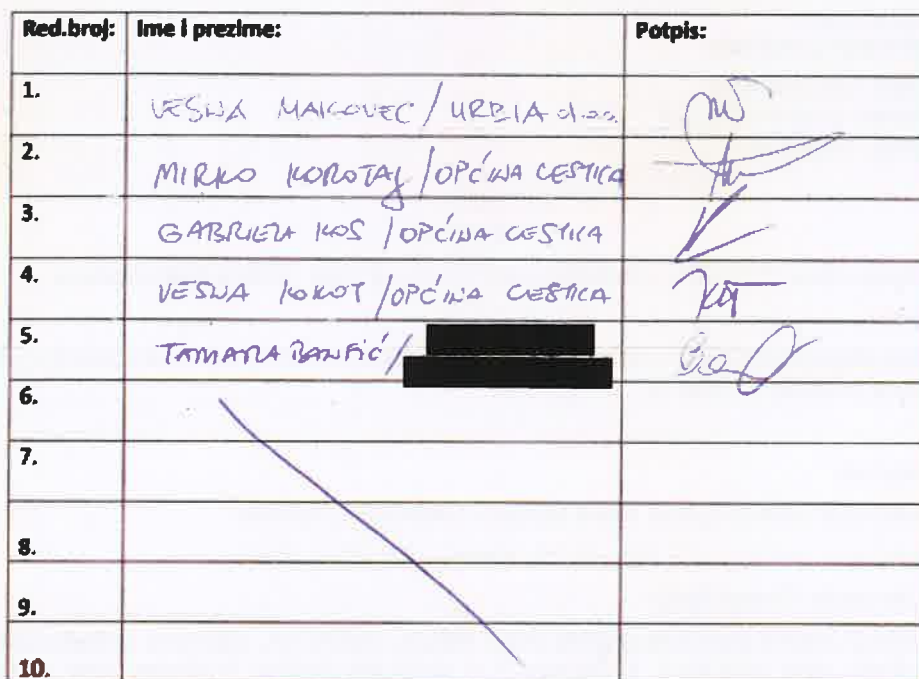 Red.broj: Ime i prezime: Potpis:
1. VESNA MAKOVEC / URBIA d.o.o.
2. MIRKO KOROTAJ / OPĆINA CESTICA
3. GABRIELA KOS / OPĆINA CESTICA
4. VESNA KOKOT / OPĆINA CESTICA
5. TAMARA BANFIĆ /
6.
7.
8.
9.
10.